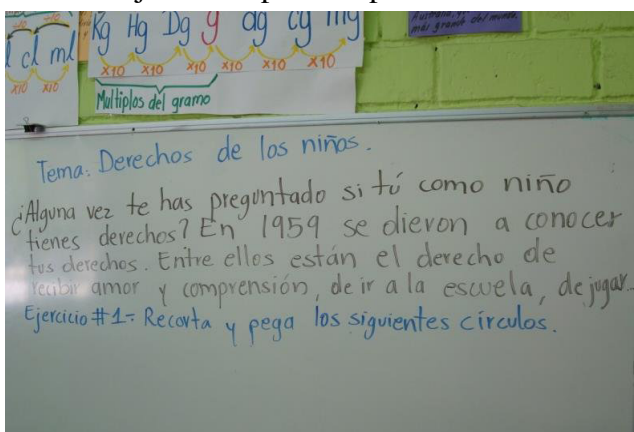 l cl ml
x10 x10
Kg Hg Dg g dg cg mg
x10 x10 x10 x10 x10 x10
Multiplos del gramo
más grande del mundo.
Tema: Derechos de los niños.
¿Alguna vez te has preguntado si tú como niño
tienes derechos? En 1959 se dieron a conocer
tus derechos. Entre ellos están el derecho de
recibir amor y comprensión, de ir a la escuela, de jugar...
Ejercicio #1: Recorta y pega los siguientes círculos.